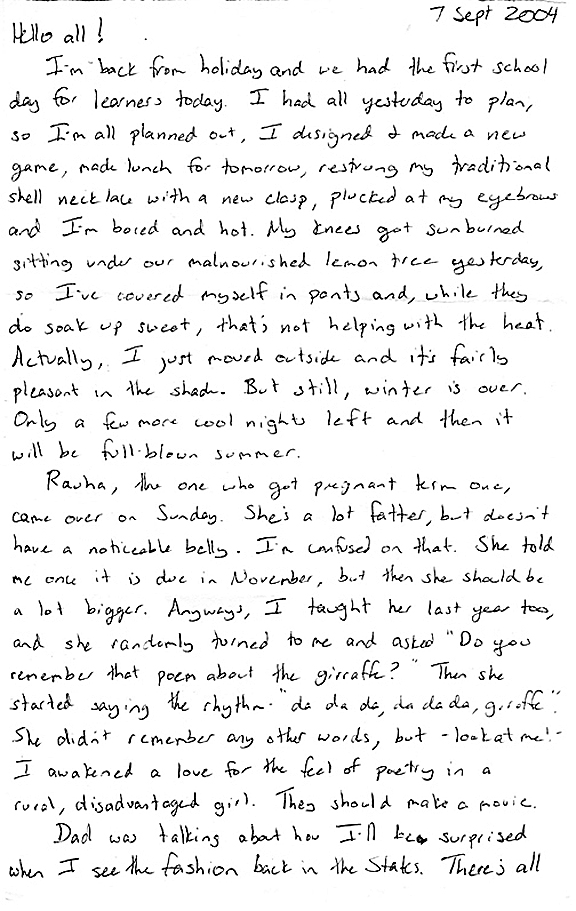 7 Sept 2004
Hello all!
I'm back from holiday and we had the first school
day for learners today. I had all yesterday to plan,
so I'm all planned out, I designed & made a new
game, made lunch for tomorrow, restrung my traditional
shell necklace with a new clasp, plucked at my eyebrows
and I'm bored and hot. My knees got sunburned
sitting under our malnourished lemon tree yesterday,
so I've covered myself in pants and, while they
do soak up sweat, that's not helping with the heat.
Actually, I just moved outside and it's fairly
pleasant in the shade. But still, winter is over.
Only a few more cool nights left and then it
will be full-blown summer.
Rauha, the one who got pregnant term one,
came over on Sunday. She's a lot fatter, but doesn't
have a noticeable belly. I'm confused on that. She told
me once it is due in November, but then she should be
a lot bigger. Anyways, I taught her last year too,
and she randomly turned to me and asked "Do you
remember that poem about the girraffe?" Then she
started saying the rhythm - "da da da, da da da, giraffe".
She didn't remember any other words, but - look at me! -
I awakened a love for the feel of poetry in a
rural, disadvantaged girl. They should make a movie.
Dad was talking about how I'll be surprised
when I see the fashion back in the States. There's all